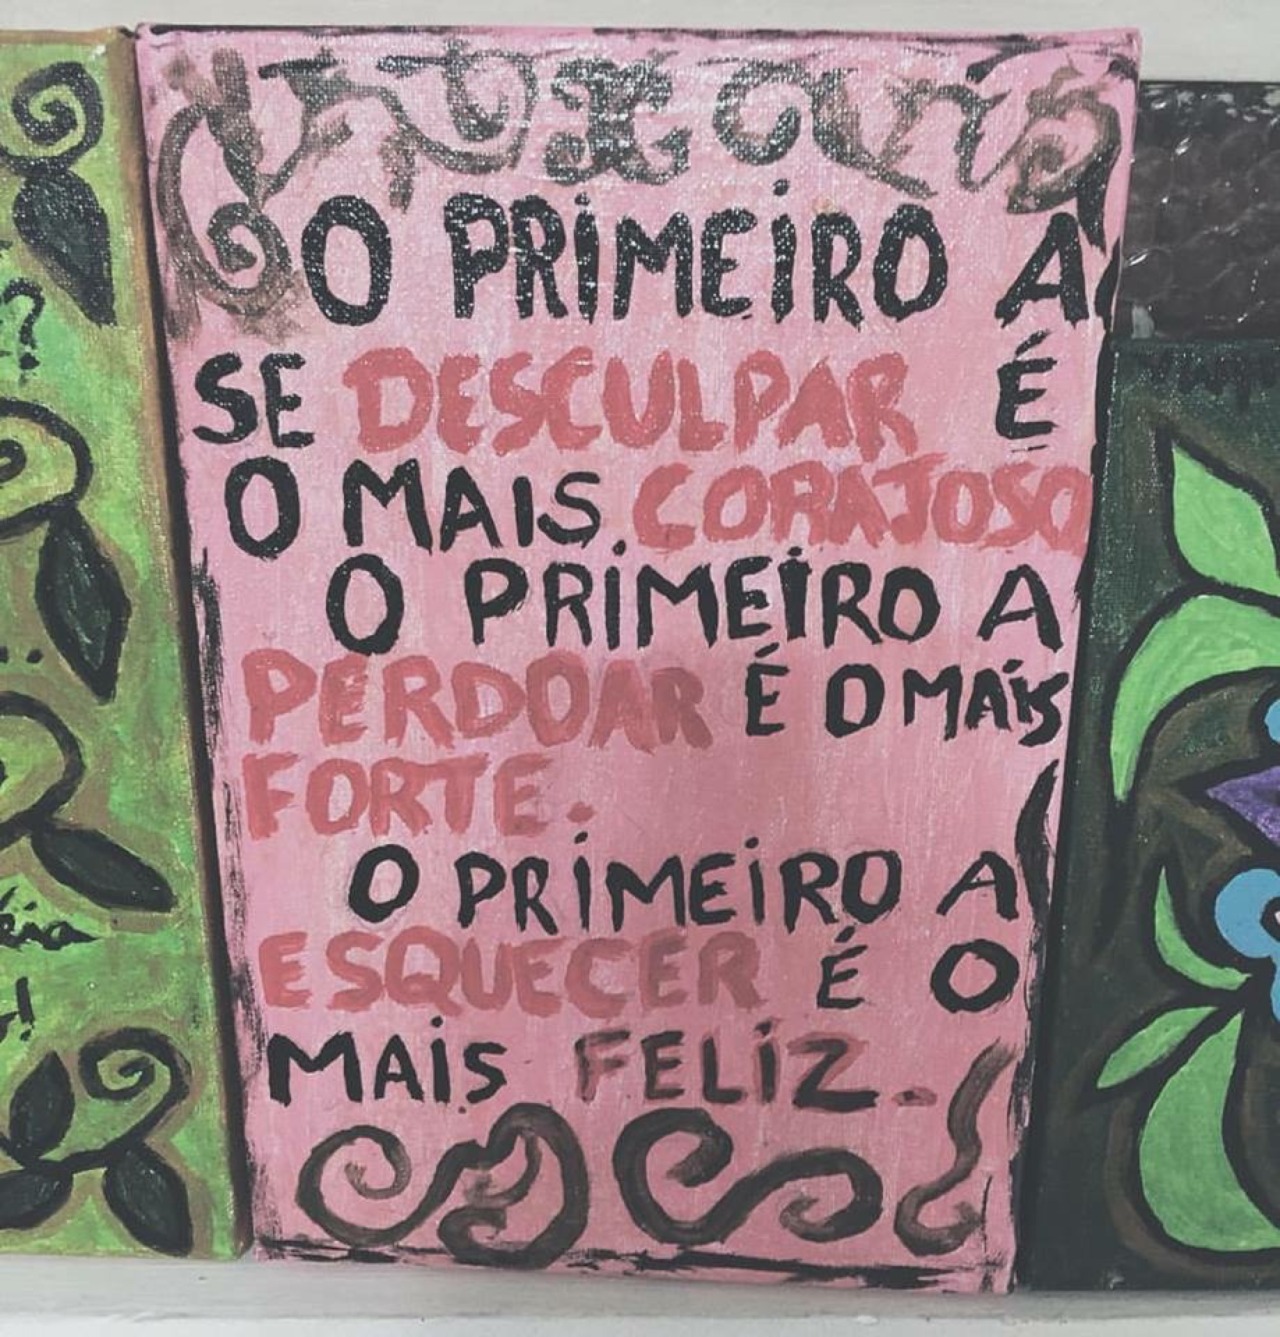 O PRIMEIRO A
SE DESCULPAR É
O MAIS CORAJOSO
O PRIMEIRO A
PERDOAR É O MAIS
FORTE.
O PRIMEIRO A
ESQUECER É O
MAIS FELIZ.